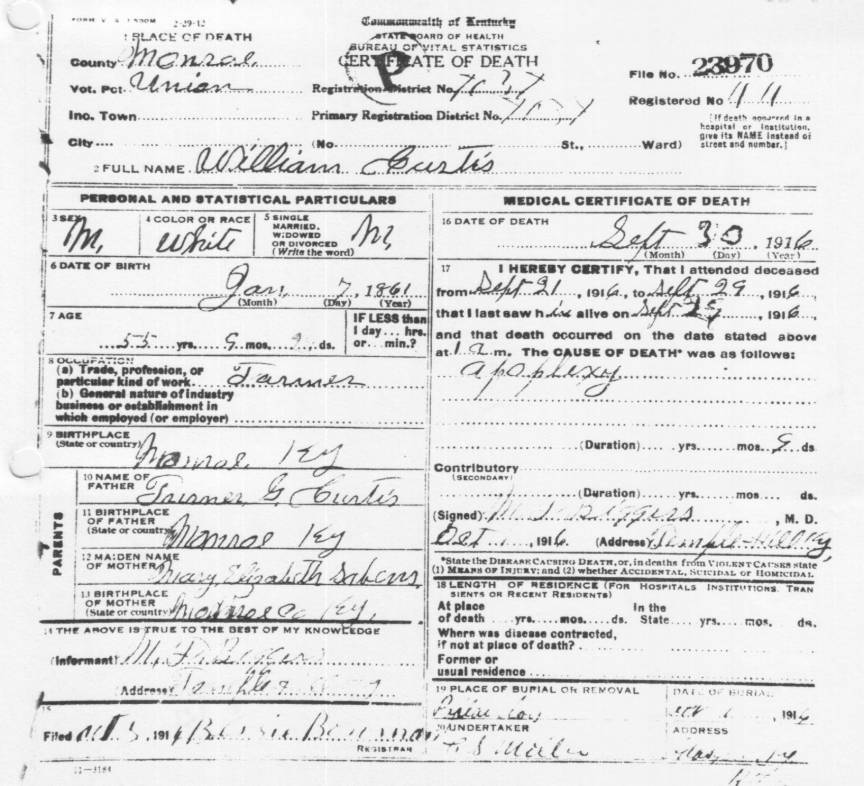 FORM V. S. 2-29-12
Commonwealth of Kentucky
STATE BOARD OF HEALTH
BUREAU OF VITAL STATISTICS
CERTIFICATE OF DEATH
P
1 PLACE OF DEATH
County Monroe
Vot. Pct Union
Inc. Town
City
Registration District No. 7037
Primary Registration District No.
(No. St., Ward)
File No. 23970
Registered No
[If death occurred in a hospital or institution, give its NAME instead of street and number.]
2 FULL NAME William Curtis
PERSONAL AND STATISTICAL PARTICULARS
3 SEX M.
4 COLOR OR RACE White
5 SINGLE MARRIED, WIDOWED OR DIVORCED (Write the word) M.
6 DATE OF BIRTH
Jan, 7, 1861
(Month) (Day) (Year)
7 AGE
55 yrs. ds.
IF LESS than 1 day... hrs. or... min.?
8 OCCUPATION
(a) Trade, profession, or particular kind of work Farmer
(b) General nature of industry business or establishment in which employed (or employer)
9 BIRTHPLACE (State or country) Monroe Ky
PARENTS
10 NAME OF FATHER G. Curtis
11 BIRTHPLACE OF FATHER (State or country) Monroe Ky
12 MAIDEN NAME OF MOTHER Mary Elizabeth
13 BIRTHPLACE OF MOTHER (State or country) Monroe Co Ky.
14 THE ABOVE IS TRUE TO THE BEST OF MY KNOWLEDGE
(Informant)
(Address)
15
Filed 191
REGISTRAR
11—3184
MEDICAL CERTIFICATE OF DEATH
16 DATE OF DEATH
Sept 30, 1916
(Month) (Day) (Year)
17 I HEREBY CERTIFY, That I attended deceased
from Sept 21, 1916, to Sept. 29, 1916,
that I last saw h alive on Sept, 1916,
and that death occurred on the date stated above
at 1 a.m. The CAUSE OF DEATH* was as follows:
apoplexy
(Duration) yrs. mos. 9 ds
Contributory (SECONDARY)
(Duration) yrs. mos. ds.
(Signed) Biggers, M. D.
Oct, 1916 (Address)
*State the DISEASE CAUSING DEATH, or, in deaths from VIOLENT CAUSES state (1) MEANS OF INJURY; and (2) whether ACCIDENTAL, SUICIDAL or HOMICIDAL.
18 LENGTH OF RESIDENCE (FOR HOSPITALS INSTITUTIONS. TRANSIENTS OR RECENT RESIDENTS)
At place of death yrs. mos. ds. In the State yrs. mos. ds.
Where was disease contracted, if not at place of death?
Former or usual residence
19 PLACE OF BURIAL OR REMOVAL
DATE OF BURIAL
1916
20 UNDERTAKER
ADDRESS